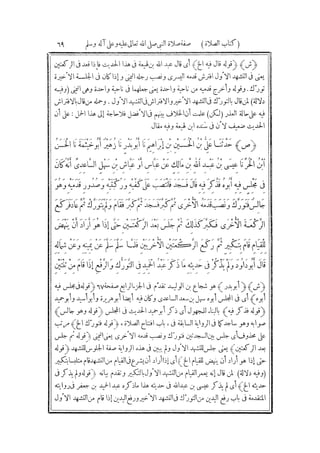 (كتاب الصلاة) صفة صلاة النبى صلى الله تعالى عليه وعلى آله وسلم ٦٩
(ش) (قوله قال فيه الخ) أى قال عبد الله بن لهيعة فى هذا الحديث فإذا قعد فى الركعتين
يعنى فى التشهد الأول افترش قدمه اليسرى ونصب رجله اليمنى وإذا كان فى الجلسة الأخيرة
تورك. وقوله وأخرج قدميه من ناحية واحدة يعنى جعلهما فى ناحية واحدة وهى اليمنى (وفيه
دلالة) لمن قال بالتورك فى التشهد الأخير والافتراش فى التشهد الأول. وحمله من قال بالافتراش
فيه على حالة العذر (لكن) علمت أن الخلاف بينهم فى الأفضل فلا حاجة إلى هذا الحمل: على أن
الحديث ضعيف لأن فى سنده ابن لهيعة وفيه مقال
(ص) حَدَّثَنَا عَلِىُّ بْنُ الْحُسَيْنِ بْنِ إِبْرَاهِيمَ نَا أَبُو بَدْرٍ نَا زُهَيْرٌ أَبُو خَيْثَمَةَ نَا الْحَسَنُ
ابْنُ الْحُرِّ نَا عِيسَى بْنُ عَبْدِ اللهِ بْنِ مَالِكٍ عَنْ عَبَّاسٍ أَوْ عَيَّاشِ بْنِ سَهْلٍ السَّاعِدِىِّ أَنَّهُ كَانَ
فِى مَجْلِسٍ فِيهِ أَبُوهُ فَذَكَرَ فِيهِ قَالَ فَسَجَدَ فَانْتَصَبَ عَلَى كَفَّيْهِ وَرُكْبَتَيْهِ وَصُدُورِ قَدَمَيْهِ وَهُوَ
جَالِسٌ فَتَوَرَّكَ وَنَصَبَ قَدَمَهُ الْأُخْرَى ثُمَّ كَبَّرَ فَسَجَدَ ثُمَّ كَبَّرَ فَقَامَ وَلَمْ يَتَوَرَّكْ ثُمَّ عَادَ فَرَكَعَ
الرَّكْعَةَ الْأُخْرَى فَكَبَّرَ كَذَلِكَ ثُمَّ جَلَسَ بَعْدَ الرَّكْعَتَيْنِ حَتَّى إِذَا هُوَ أَرَادَ أَنْ يَنْهَضَ
لِلْقِيَامِ قَامَ بِتَكْبِيرٍ ثُمَّ رَكَعَ الرَّكْعَتَيْنِ الْأُخْرَيَيْنِ فَلَمَّا سَلَّمَ سَلَّمَ عَنْ يَمِينِهِ وَعَنْ شِمَالِهِ
قَالَ أَبُو دَاوُدَ وَلَمْ يَذْكُرْ فِى حَدِيثِهِ مَا ذَكَرَ عَبْدُ الْحَمِيدِ فِى التَّوَرُّكِ وَالرَّفْعِ إِذَا قَامَ مِنْ ثِنْتَيْنِ
(ش) (أبو بدر) هو شجاع بن الوليد تقدم فى الجزء الرابع صفحة ٧٦ (قوله فى مجلس فيه
أبوه) أى فى المجلس أبوه سهل بن سعد الساعدى وكان فيه أيضا أبو هريرة وأبو أسيد وأبو حميد
(قوله فذكر فيه) بالبناء للمجهول أى ذكر أبو حميد الحديث فى المجلس (قوله وهو جالس)
صوابه وهو ساجد كما فى الرواية السابقة فى. باب افتتاح الصلاة. (قوله فتورك الخ) مرتب
على محذوف أى جلس بين السجدتين فتورك ونصب قدمه الأخرى يعنى اليمنى (قوله ثم جلس
بعد الركعتين) يعنى جلس للتشهد الأول ولم يبين فى هذه الرواية صفة الجلوس للتشهد (قوله
حتى إذا هو أراد أن ينهض للقيام الخ) أى إذا أراد أن يشرع فى القيام من التشهد قام متلبسا بتكبير
(وفيه دلالة) لمن قال إنه يعمر القيام من التشهد الأول بالتكبير وتقدم بيانه (قوله ولم يذكر فى
حديثه الخ) أى لم يذكر عيسى بن عبد الله فى حديثه هذا ما ذكره عبد الحميد بن جعفر فى روايته
المتقدمة فى باب رفع اليدين من التورك فى التشهد الأخير ورفع اليدين إذا قام من التشهد الأول